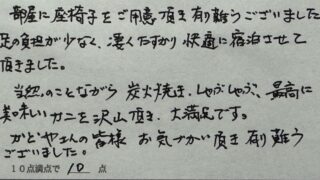 部屋に座椅子をご用意頂き有難うございました
足の負担が少なく、凄くたすかり快適に宿泊させて
頂きました。
当然のことながら炭火焼き、しゃぶしゃぶ、最高に
美味しいカニを沢山頂き、大満足です。
かどやさんの皆様 お気づかい頂き有り難う
ございました。
10点満点で 10 点